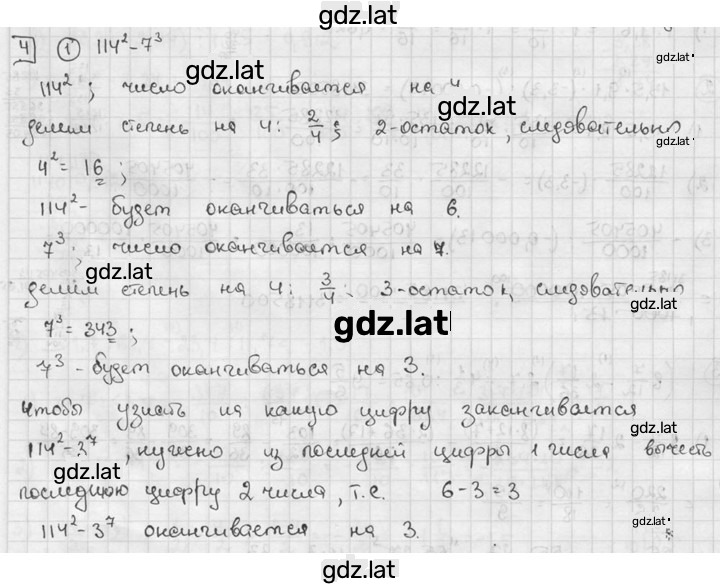 gdz.lat
4 1 114² - 7³
gdz.lat
gdz.lat
114² ; число оканчивается на 4
gdz.lat
делим степень на 4: 2/4 ; 2-остаток, следовательно
gdz.lat
4² = 16 ;
114² - будет оканчиваться на 6.
7³ ; число оканчивается на 7.
gdz.lat
делим степень на 4: 3/4 : 3-остаток, следовательно
7³ = 343 ;
gdz.lat
7³ - будет оканчиваться на 3.
Чтобы узнать на какую цифру заканчивается
gdz.lat
114² - 3⁷ , нужно из последней цифры 1 числа вычесть
gdz.lat
последнюю цифру 2 числа, т.е. 6-3=3
114² - 3⁷ оканчивается на 3.
gdz.lat
gdz.lat